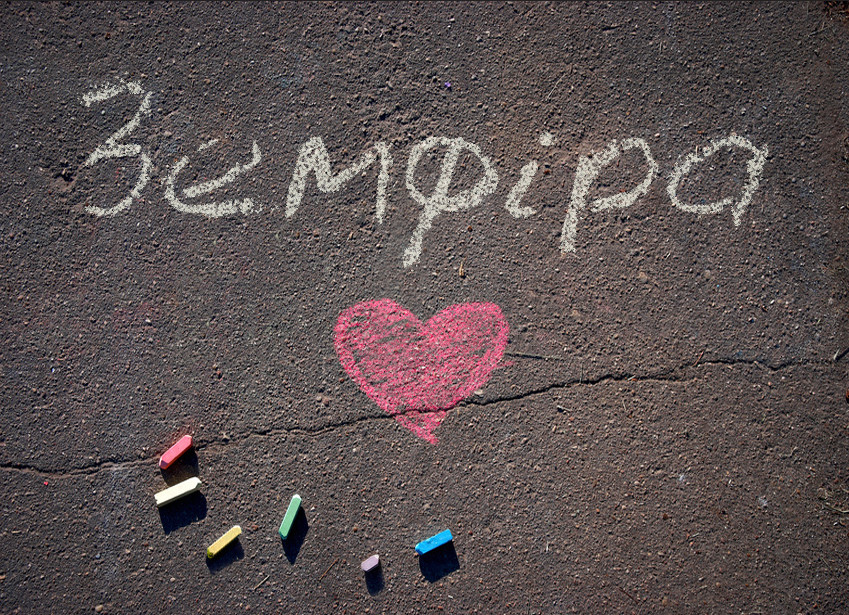 Земфіра